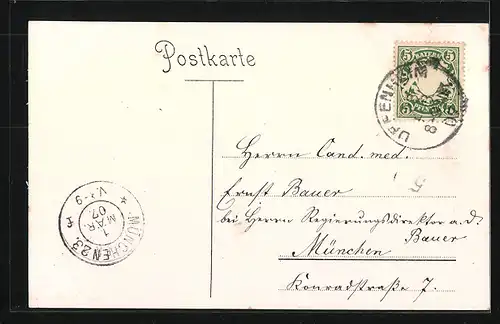 Postkarte
BAYERN
5 5
PFENNIG
UFFEN
Herrn Cand. med.
5
Ernst Bauer
bei Herrn Regierungsdirektor a.D.
Bauer
München
Konradstraße 7.
V.8-9
1
MAR
07
MÜNCHEN 23.